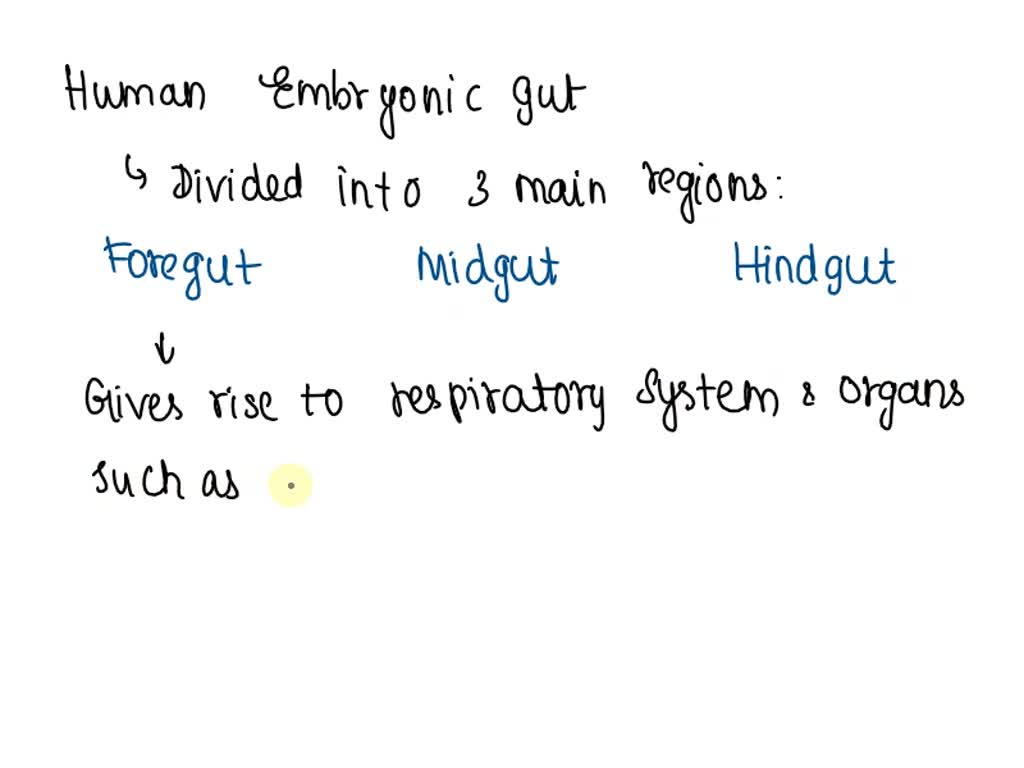 Human Embryonic gut
↳ Divided into 3 main regions:
Foregut Midgut Hindgut
↓
Gives rise to respiratory system & organs
such as